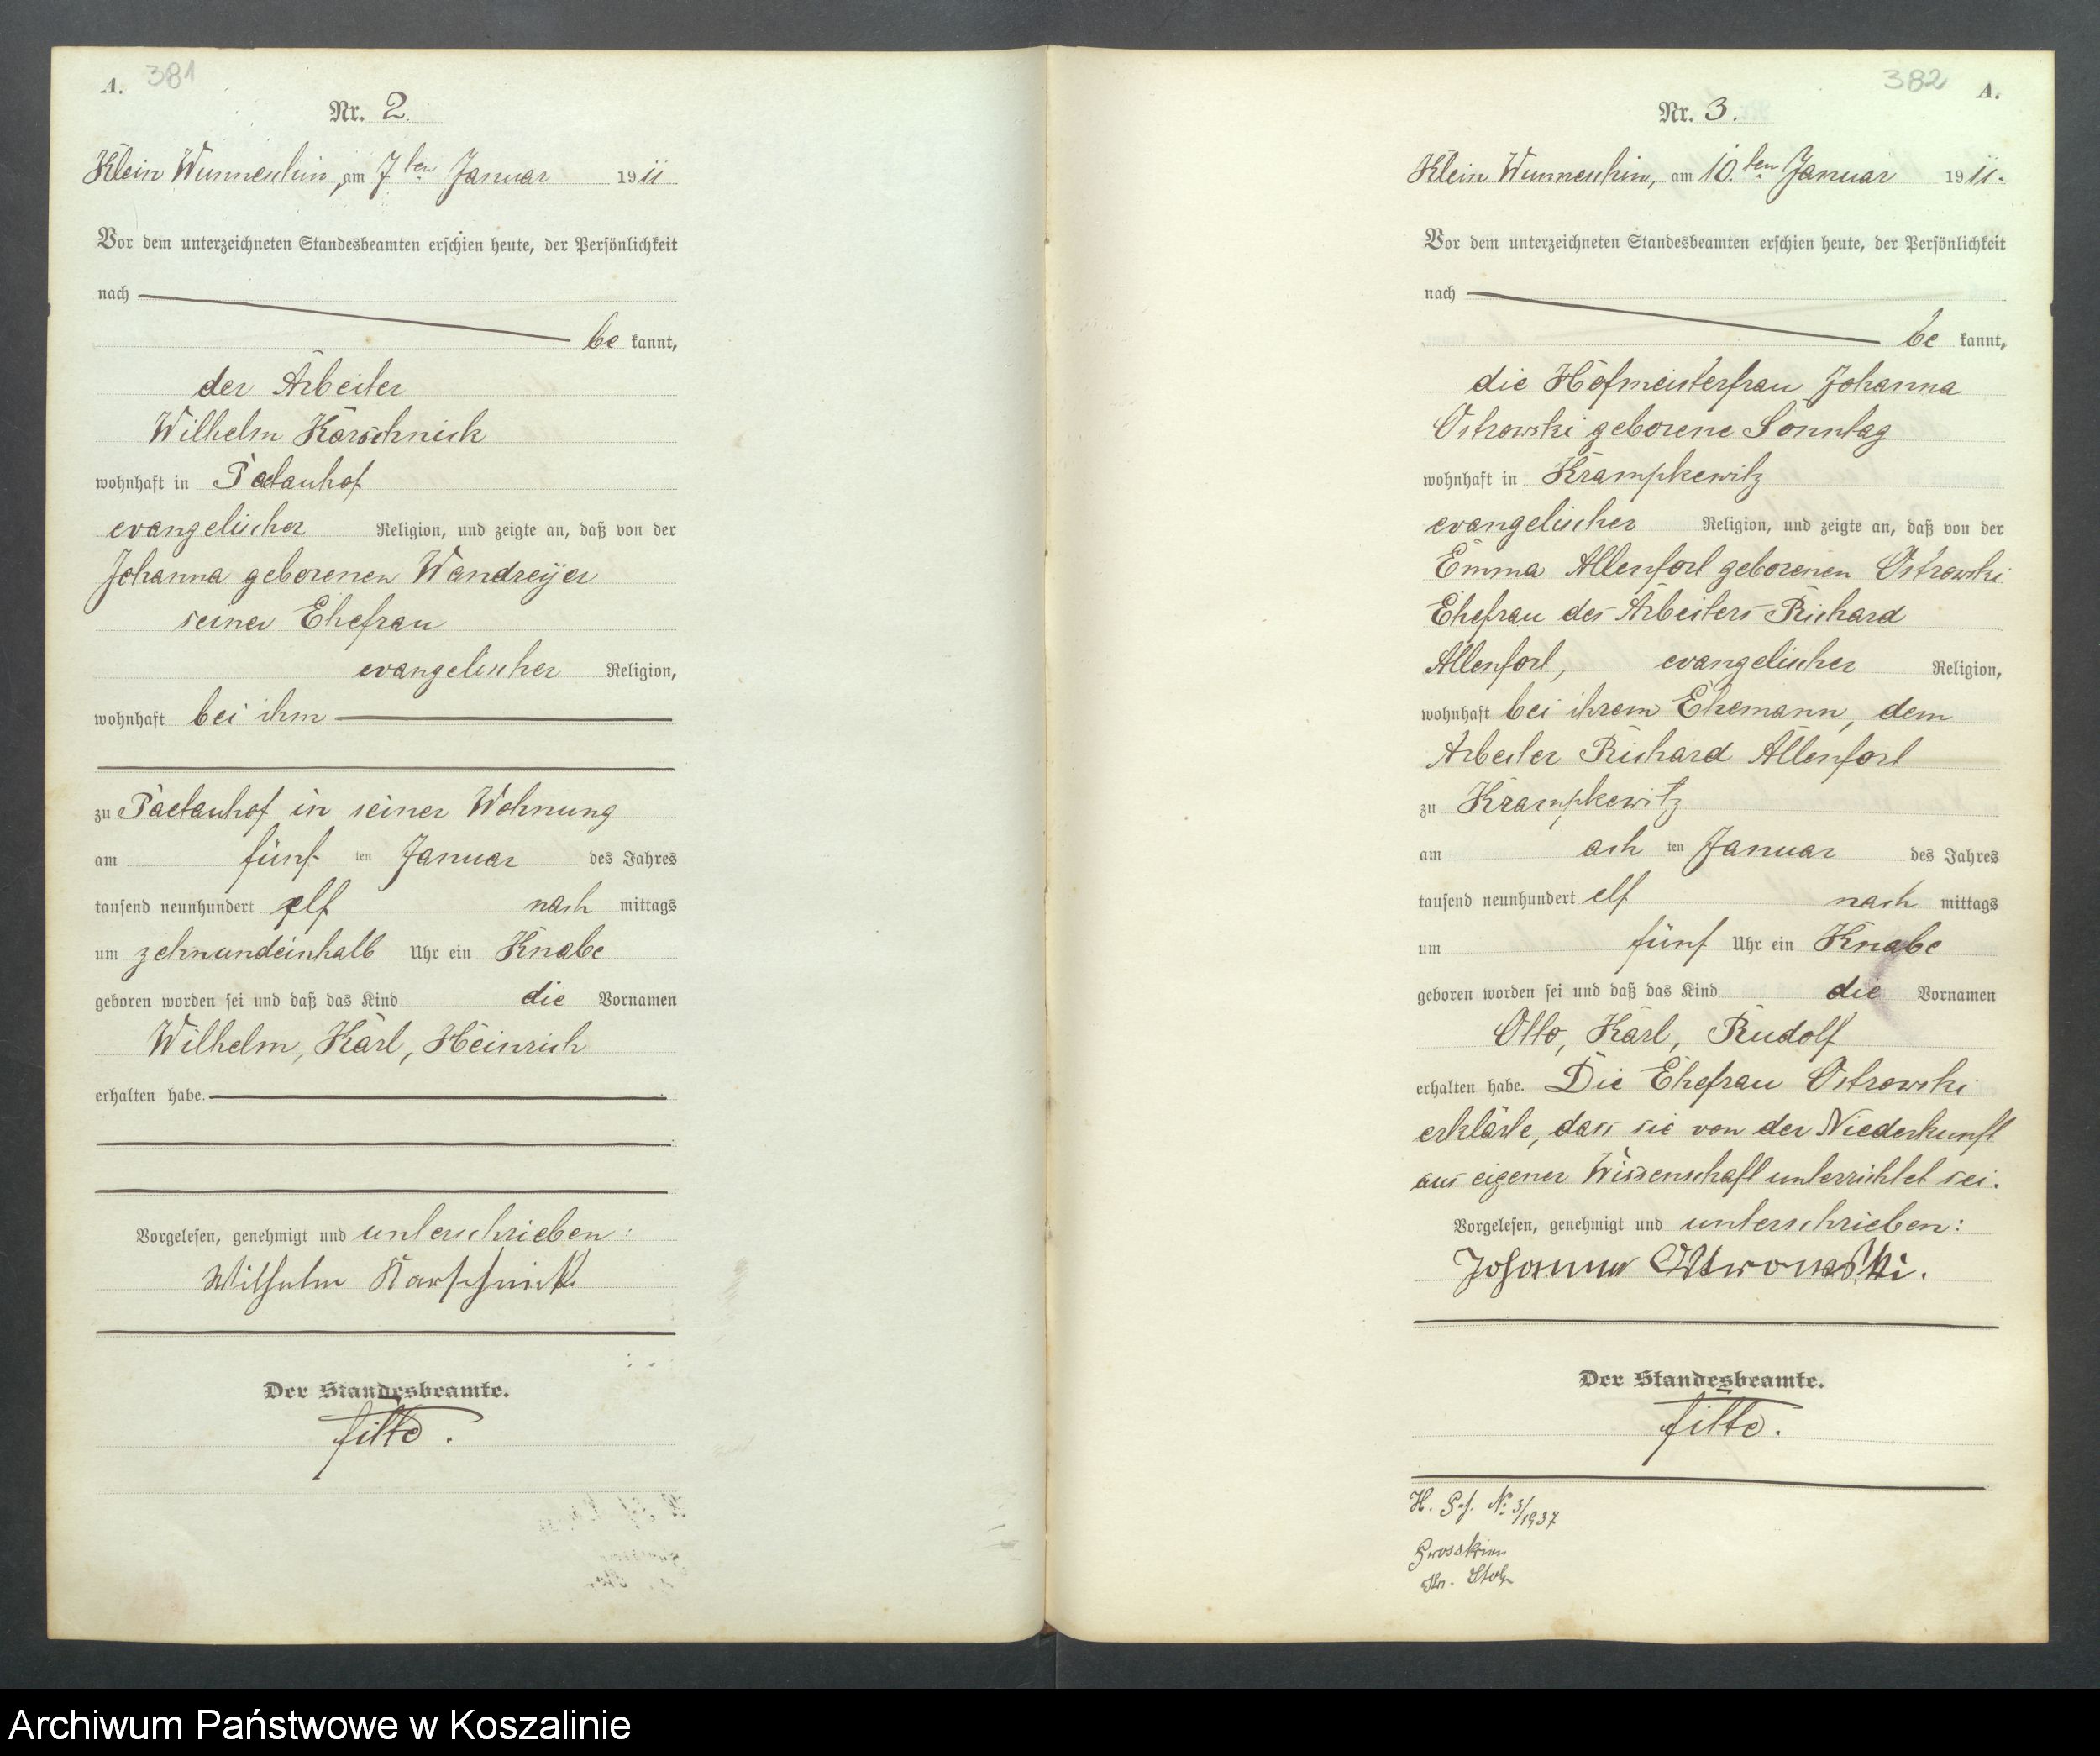 A. 381
Nr. 2.
Klein Wunneschin, am 7ten Januar 1911
Vor dem unterzeichneten Standesbeamten erschien heute, der Persönlichkeit
nach
be kannt,
der Arbeiter
Wilhelm Karschnick
wohnhaft in
evangelischer Religion, und zeigte an, daß von der
Johanna geborenen Wandreyer
seiner Ehefrau
evangelischer Religion,
wohnhaft bei ihm
zu in seiner Wohnung
am fünf ten Januar des Jahres
tausend neunhundert elf nach mittags
um zehnundeinhalb Uhr ein Knabe
geboren worden sei und daß das Kind die Vornamen
Wilhelm, Karl, Heinrich
erhalten habe.
Vorgelesen, genehmigt und unterschrieben:
Wilhelm Karschnick
Der Standesbeamte.
382 A.
Nr. 3.
Klein Wunneschin, am 10.ten Januar 1911.
Vor dem unterzeichneten Standesbeamten erschien heute, der Persönlichkeit
nach
be kannt,
die Hofmeisterfrau Johanna
Ostrowski geborene Sonntag
wohnhaft in Krampkewitz
evangelischer Religion, und zeigte an, daß von der
Emma Allenfort geborenen Ostrowski
Ehefrau des Arbeiters Richard
Allenfort, evangelischer Religion,
wohnhaft bei ihrem Ehemann, dem
Arbeiter Richard Allenfort
zu Krampkewitz
am ach ten Januar des Jahres
tausend neunhundert elf nach mittags
um fünf Uhr ein Knabe
geboren worden sei und daß das Kind die Vornamen
Otto, Karl, Rudolf
erhalten habe. Die Ehefrau Ostrowski
erklärte, dass sie von der Niederkunft
aus eigener Wissenschaft unterrichtet sei.
Vorgelesen, genehmigt und unterschrieben:
Johanna Ostrowski.
Der Standesbeamte.
H. No 3/1937
Archiwum Państwowe w Koszalinie